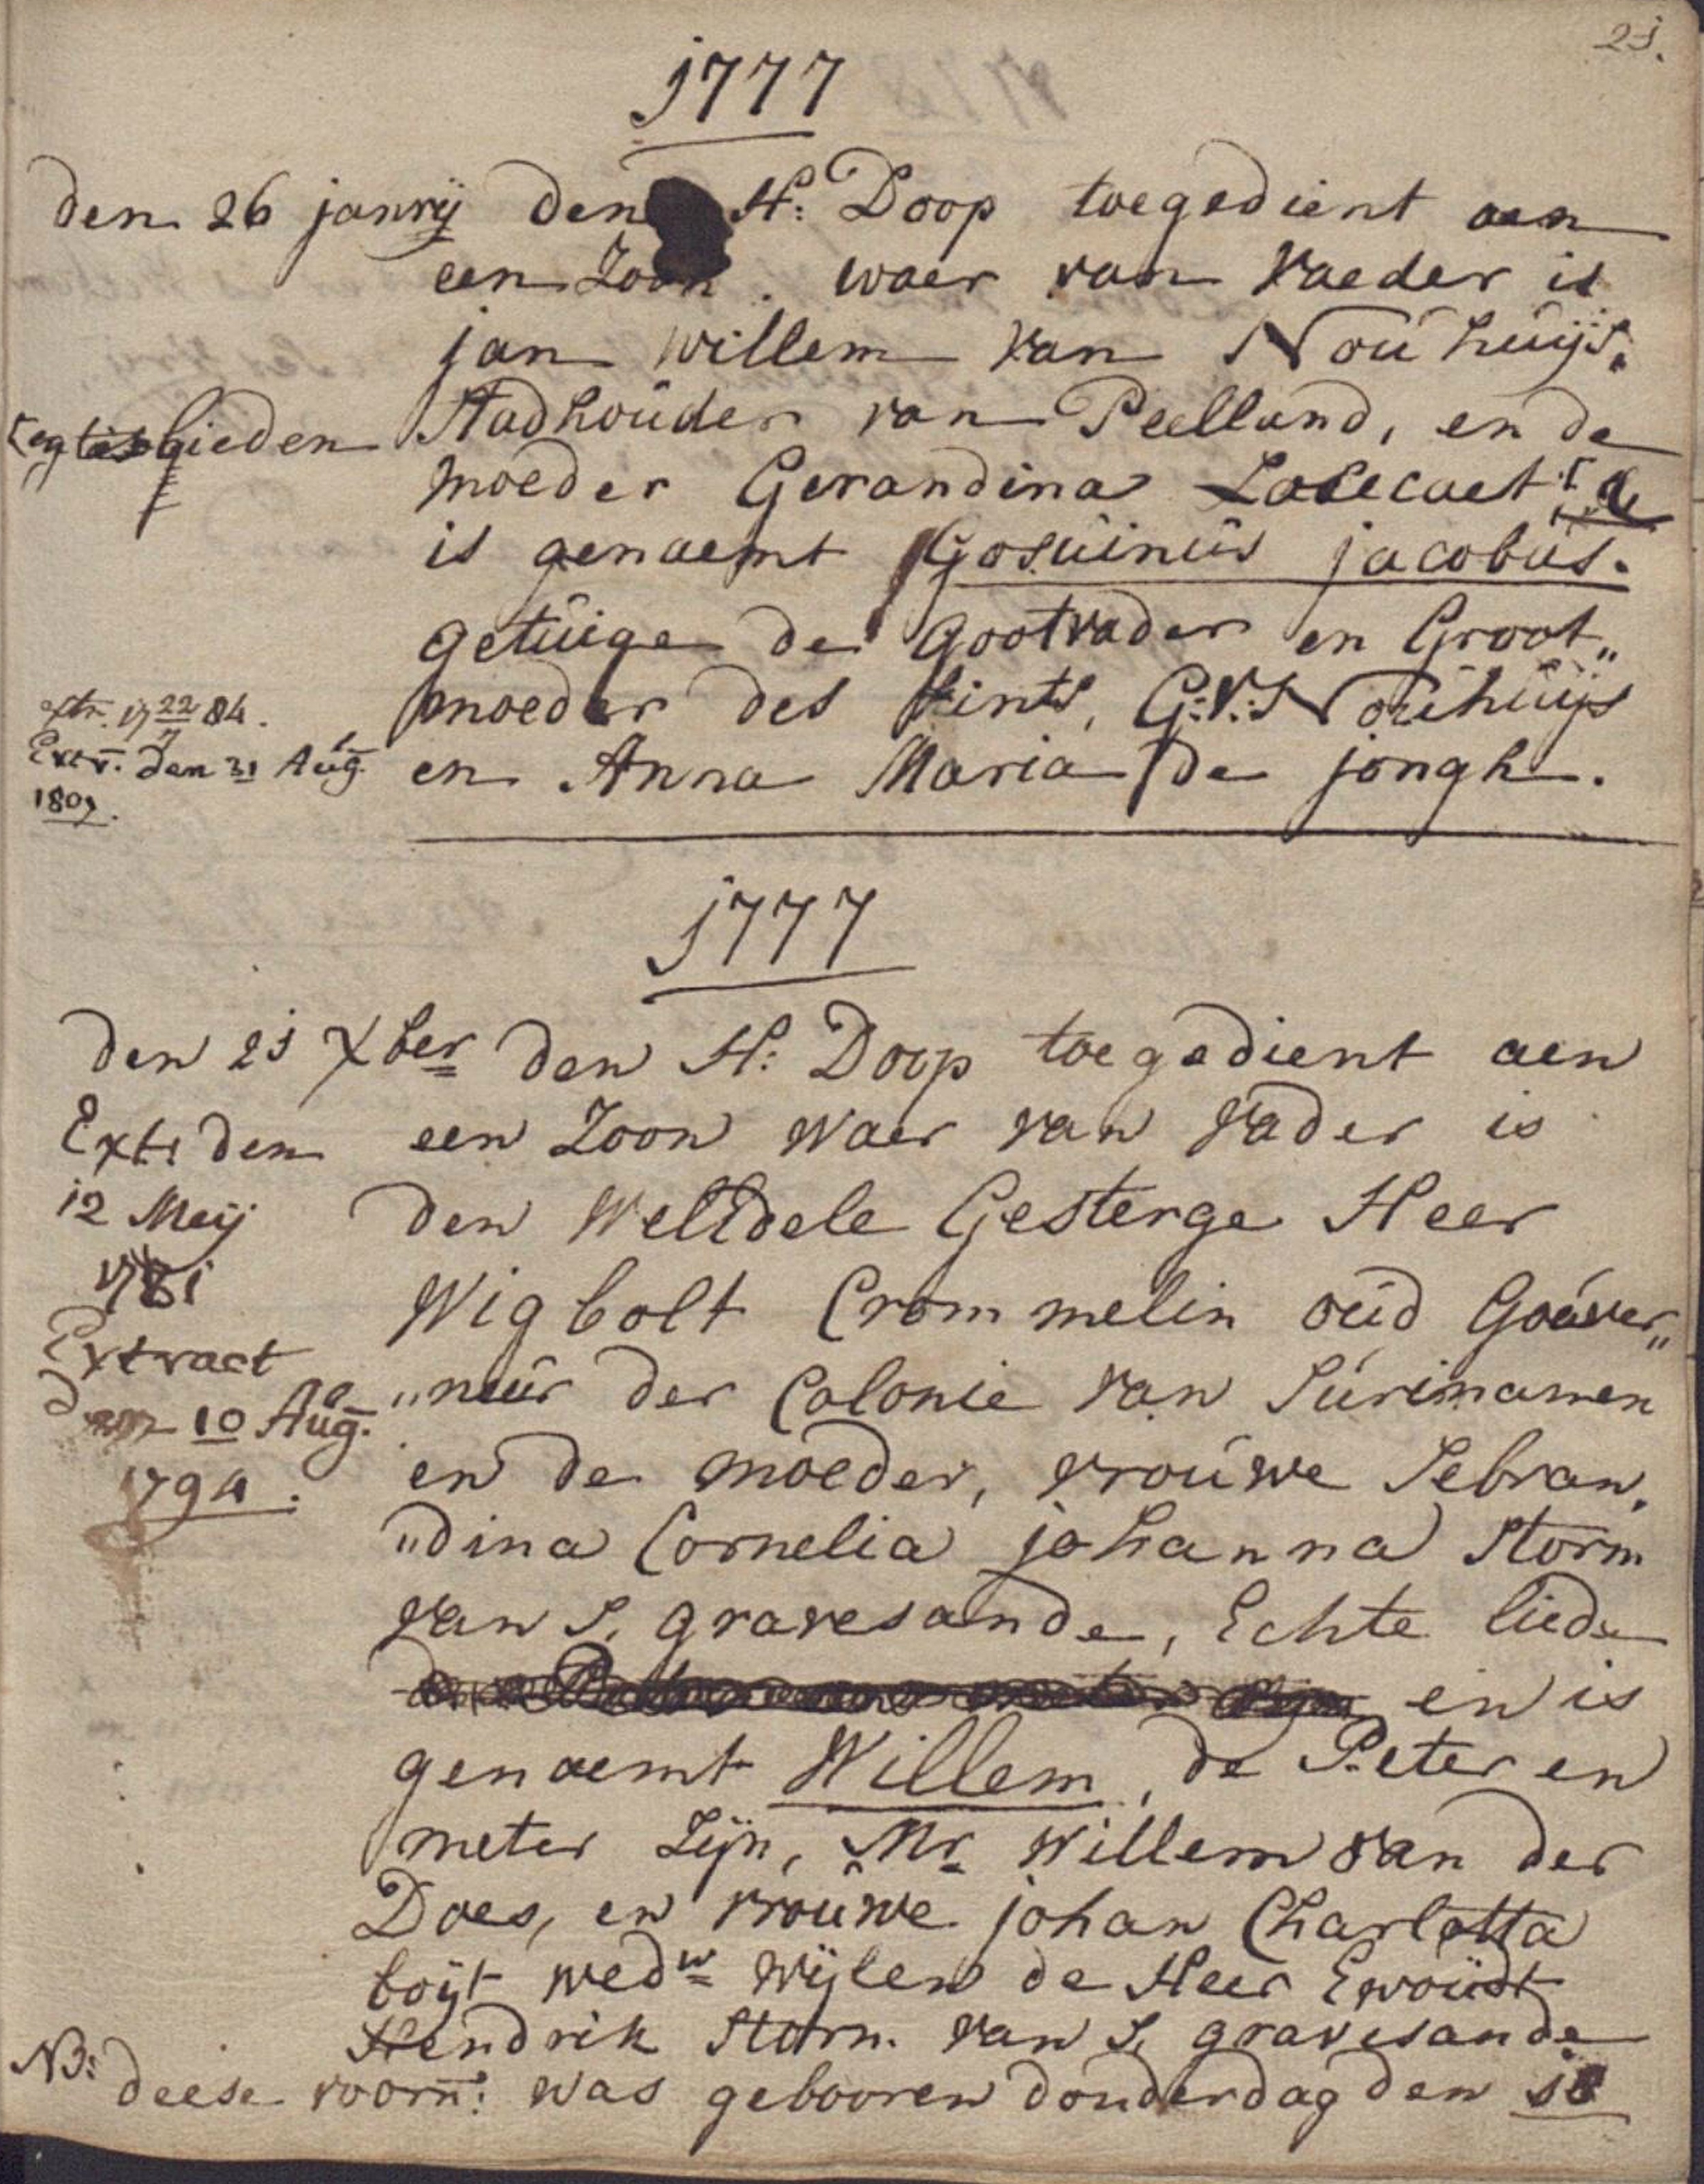 21.
1777
den 26 janrij den H: Doop toegedient aen
een Zoon. waer van Vaeder is
jan willem van Nouhuijs.
Stadhouder van Peelland, en de
egte lieden
moeder Gerandina Lacecaet
is genaemt Gosuinus jacobus.
getuige de Gootvader en Groot„
moeder des kints, G:V:S Nouhuijs
extr. 17 22/7 84.
Extr. den 31 Aug.
1809.
en Anna Maria de jongh.
1777
den 21 Xber den H: Doop toegedient aen
Ext: den
12 Meij
1781
Extract
den 10 Aug.
1794.
een Zoon waer van Vader is
den WelEdele Gesterge Heer
Wigbolt Crommelin oud Gouver„
„neur der Colonie van Surinamen
en de moeder, vrouwe Sebran,
„dina Cornelia johanna Storm
van S. gravesande, Echte liede
en is
genaemt Willem, de Peter en
meter Zijn, Mr willem van der
Does, en vrouwe johan Charlotta
boijt wedw wijlen de Heer Ewoudt
Hendrik Storm van S. gravesande
NB: deese voorn: was gebooren donderdag den 18